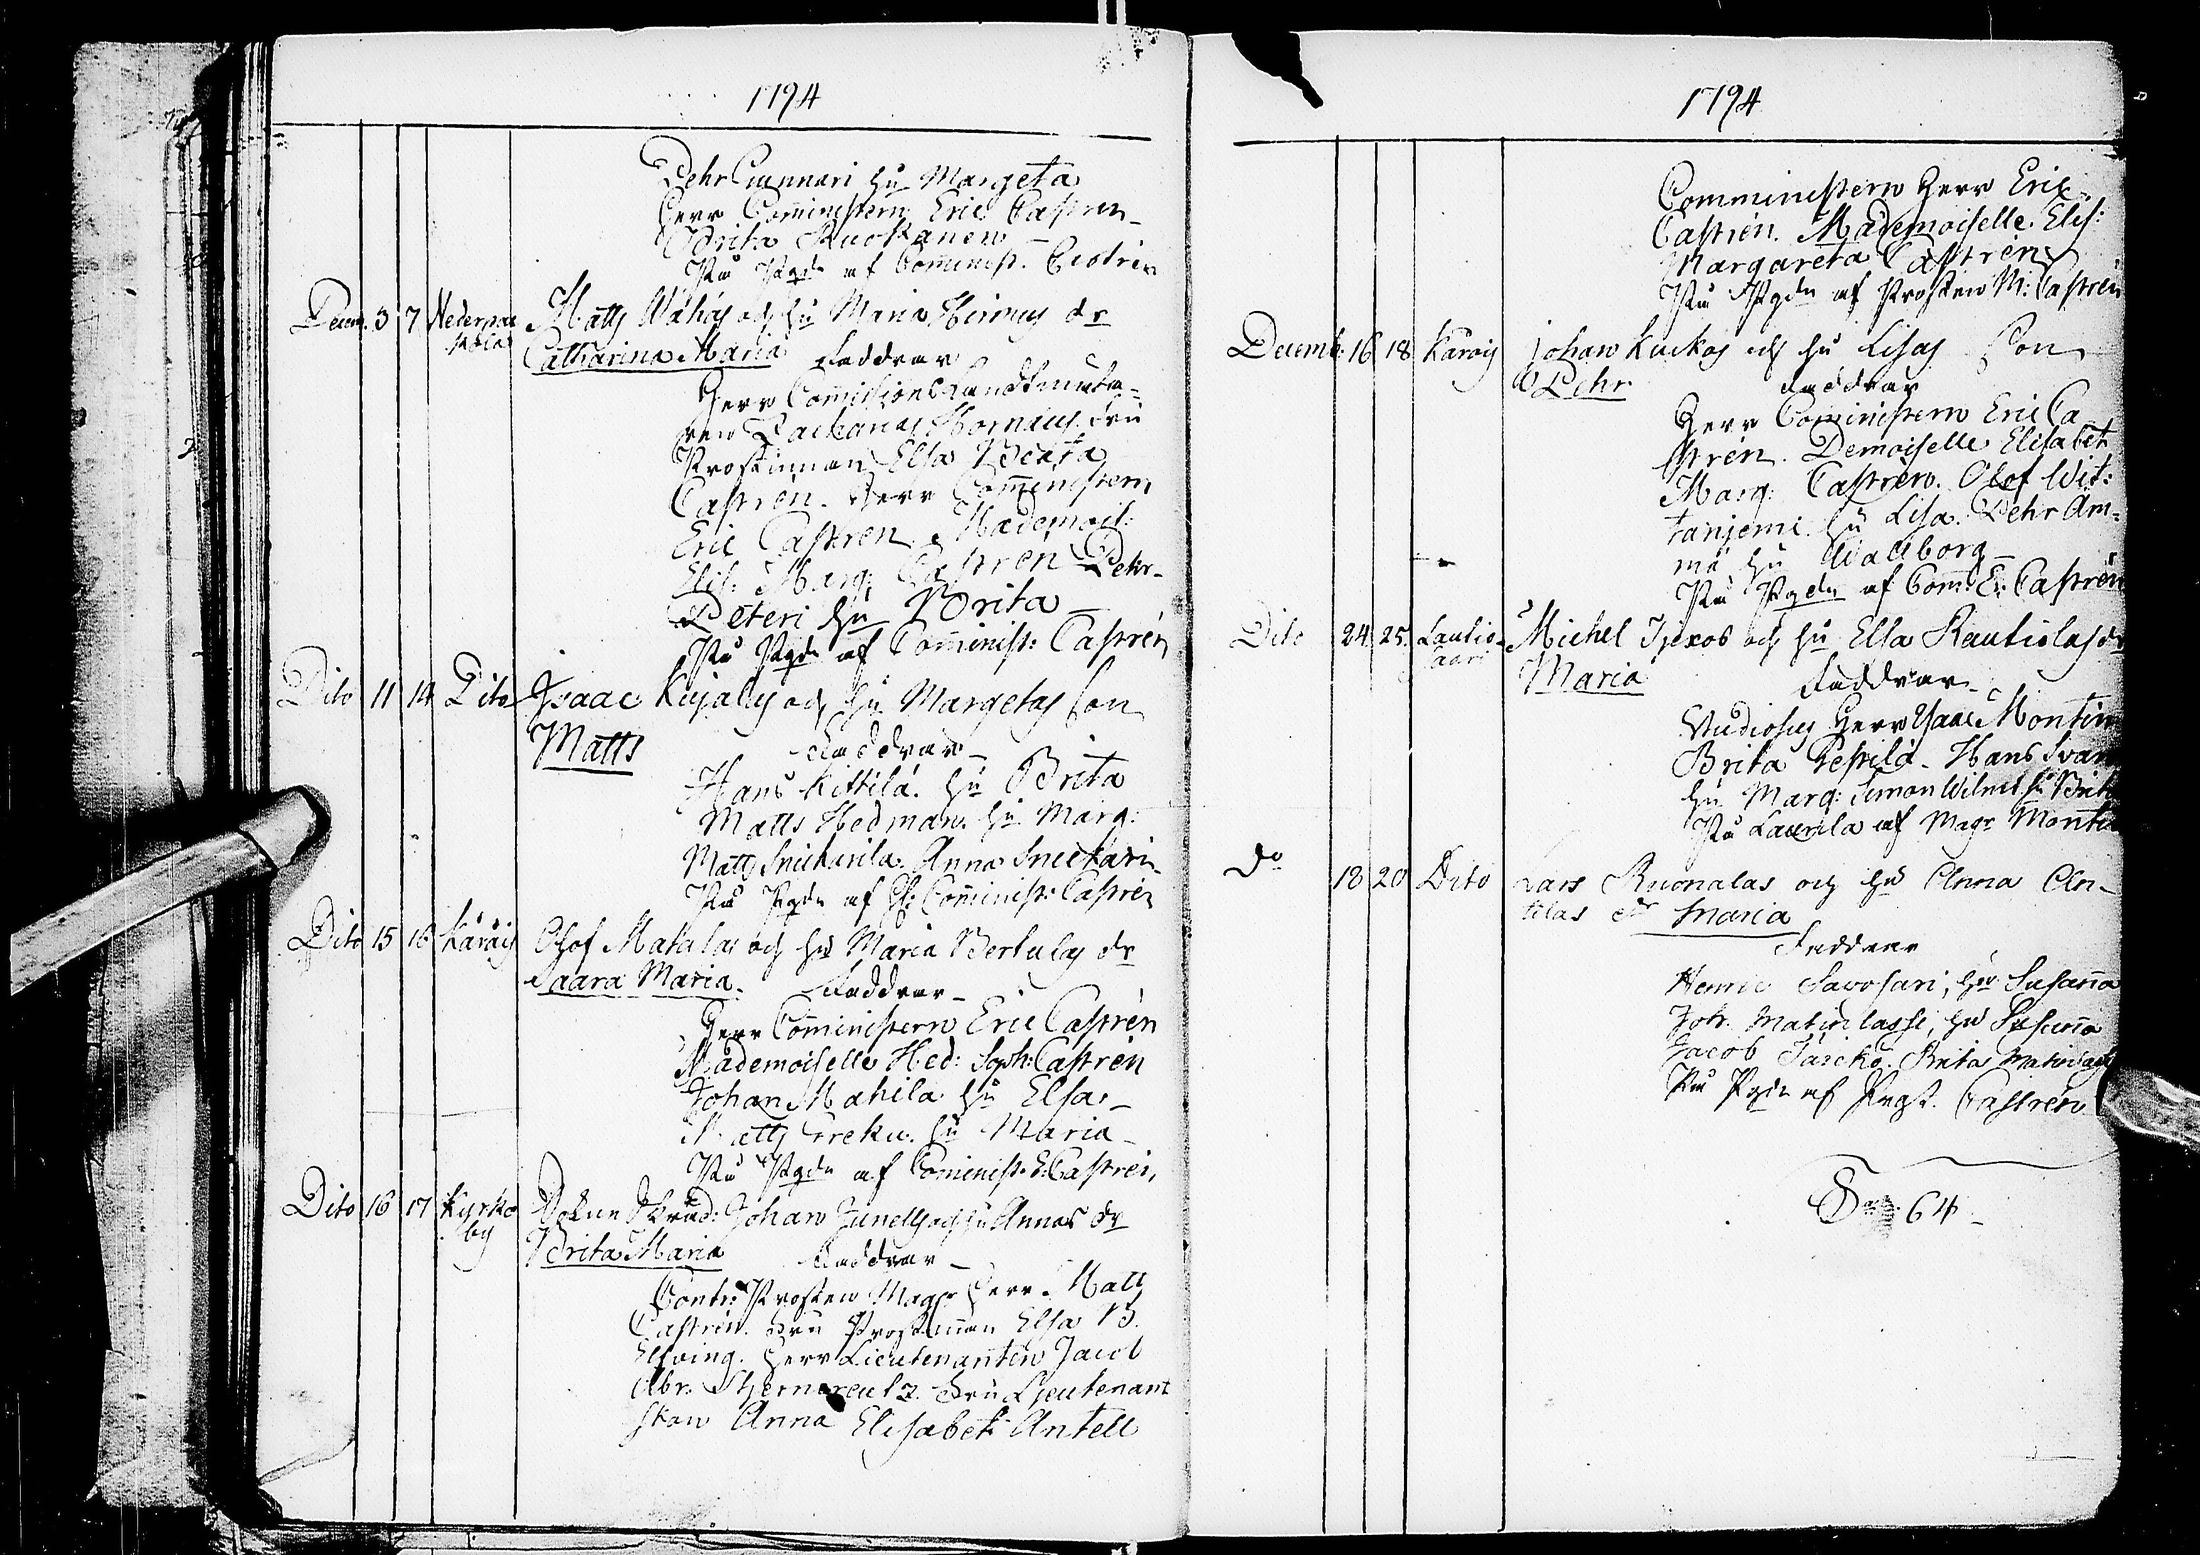 1794
Pehr Gunnari hu Margeta
Herr Comministern Eric Castren
Brita Ruokanen
På Pgdn af Comminist. Castren
Decem. 3 7 Nederpaa
kola
Matts Wähäs och hu Maria Hirnus dr
Catharina Maria Faddrar
Herr Commissions Landtmäta-
ren Zackarias Hornaeus. Fru
Prostinnan Elsa Beata
Castrén. Herr Comministern
Eric Castren. Mademois:
Elis: Marg: Castren Pehr
Peteri hu Brita
På Pgdn af Comminist: Castrén
Dito 11 14 Dito Isaac Kujalas och hu Margetas Son
Matts Faddrar
Hans Kittilä. hu Brita
Matts Hedman. hu Marg:
Matts Snickarila. Anna Snickari
På Pgdn af H: Comminist: Castrén
Dito 15 16 Karais Olof Matalas och hu Maria Bertulas dr
Saara Maria. Faddrar
Herr Comministern Eric Castrén
Mademoiselle Hed: Soph: Castrén
Johan Mahila hu Elsa
Matts Greku. hu Maria
På Pgdn af Cominist: E: Castrén,
Dito 16 17 Kyrko
by
Sokne Skräd: Johan Junells och hu Annas dr
Brita Maria Faddrar
Contr: Prosten Magr Herr Matts
Castrén. Fru Prostinnan Elsa B.
Elfving. Herr Lieutenanten Jacob
Abr. Stjerncreutz. Fru Lieutenant
skan Anna Elisabet Antell
1794
Comministern Herr Eric
Castrén. Mademoiselle Elis:
Margareta Castrén
På Pgdn af Prosten M: Castrén
Decemb: 16 18 Karais Johan Kuckos och hu Lisas Son
Pehr Faddrar
Herr Cominístern Eric Ca
strén. Demoiselle Elisabet
Marg: Castrén. Olof Wit:
tanjemi hu Lisa. Pehr Am-
mä hu Wallborg
På Pgdn af Com: E: Castrén
Dito 24 25. Lautio-
saari
Michel och hu Elsa Rautiolas dr
Maria Faddrar
Studiosus Herr Isaac Montin
Brita Pessilä. Hans Svan
hu Marg: Simon Wilmi hu Brita
På Laurila af Magr Montin
Do 18 20 Dito Lars Ruonalas och hu Anna An-
tilas dr Maria
Faddrar
Henric Savosari, hu Susanna
Joh. Matinlassi, hu Susanna
Jacob Jäickö. Brita Matinlassi
På Pgdn af Prost. Castrén
Sm. 64